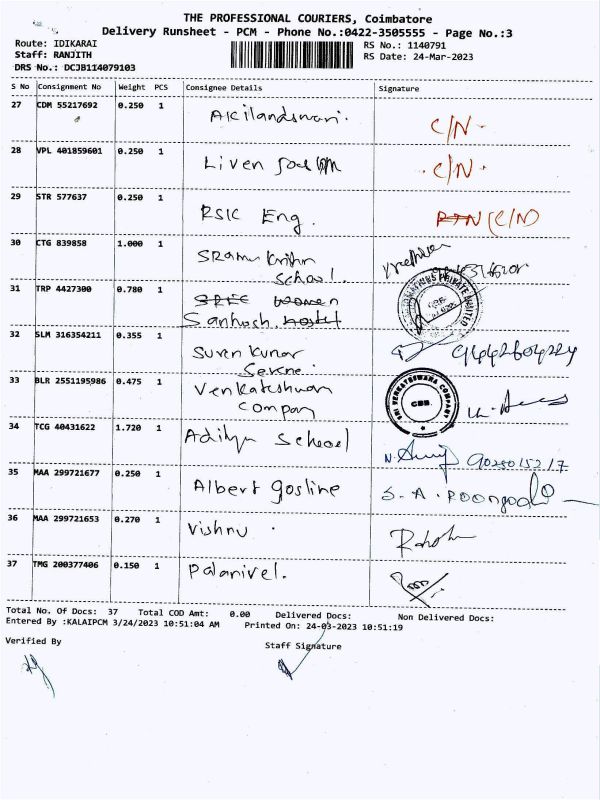 THE PROFESSIONAL COURIERS, Coimbatore
Delivery Runsheet - PCM - Phone No.:0422-3505555 - Page No.:3
Route: IDIKARAI
Staff: RANJITH
DRS No.: DCJB114079103
RS No.: 1140791
RS Date: 24-Mar-2023
S No Consignment No Weight PCS Consignee Details Signature
27 CDM 55217692 0.250 1 Akilandswari. C/N.
28 VPL 401859601 0.250 1 Liven C/N.
29 STR 577637 0.250 1 RSIC Eng. (C/N)
30 CTG 839858 1.000 1
School.
31 TRP 4427300 0.780 1 women
Santhosh hostel
32 SLM 316354211 0.355 1 Suren Kumar
33 BLR 2551195986 0.475 1 Venkateshwan
Company
SRI VENKATESWARA COMPANY
CBE.
34 TCG 40431622 1.720 1 Adithya School
9028015217
35 MAA 299721677 0.250 1 Albert Gosline S. A. Poongodi
36 MAA 299721653 0.270 1 Vishnu.
37 TMG 200377406 0.150 1 Palanivel.
Total No. Of Docs: 37 Total COD Amt: 0.00 Delivered Docs: Non Delivered Docs:
Entered By :KALAIPCM 3/24/2023 10:51:04 AM Printed On: 24-03-2023 10:51:19
Verified By Staff Signature